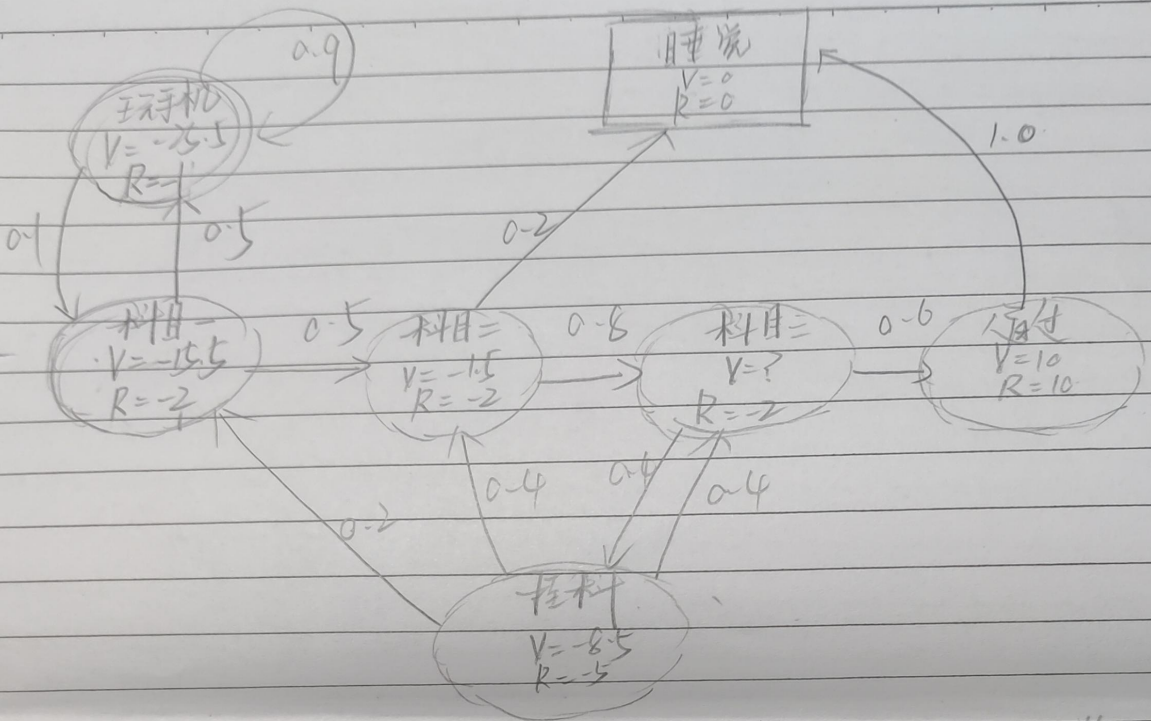 0.9
睡觉
V=0
R=0
玩手机
V=-25.5
R=-1
1.0
0.1
0.5
0.2
科目一
V=-15.5
R=-2
0.5
科目二
V=-1.5
R=-2
0.8
科目三
V=?
R=-2
0.6
V=10
R=10
0.4
0.4
0.4
0.2
挂科
V=-8.5
R=-5